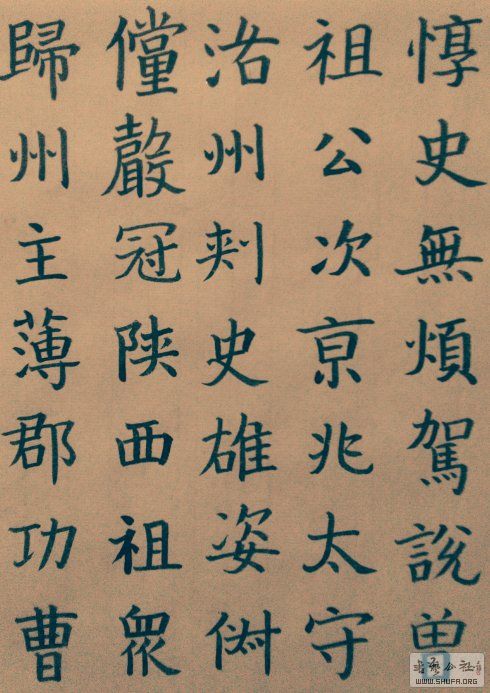 惇史無煩駕說曾
祖公次亰兆太守
洛州刾史雄姿倜
儻聲冠陕西祖眾
歸州主薄郡功曹
书艺公社
WWW.SHUFA.ORG